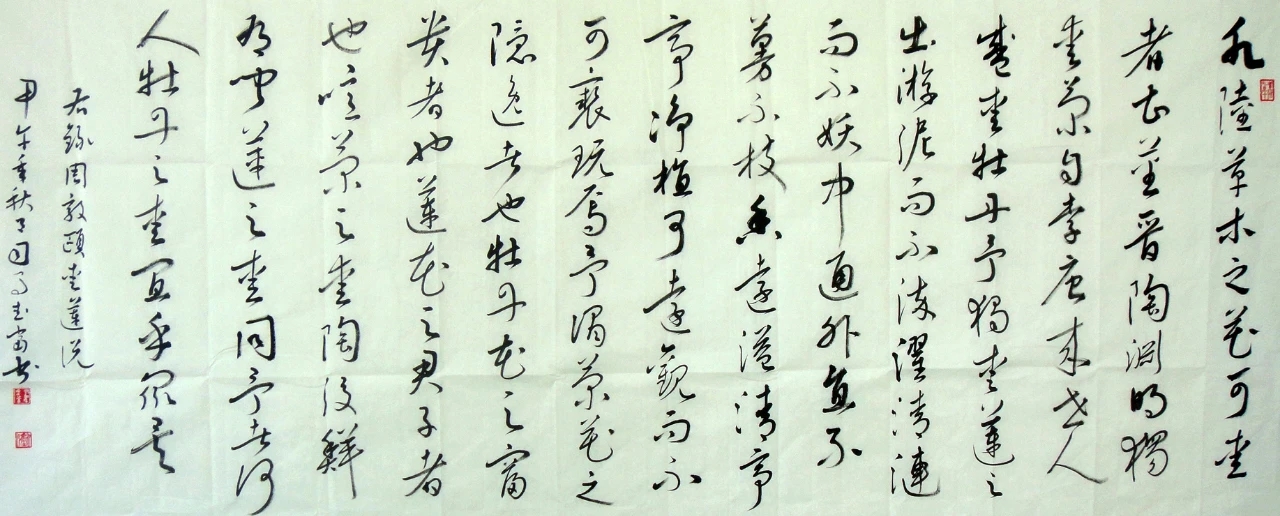 水陸草木之花可愛
者甚蕃晋陶渊明獨
愛菊自李唐来世人
盛愛牡丹予獨愛蓮之
出淤泥而不染濯清漣
而不妖中通外直不
蔓不枝香遠溢清亭
亭净植可遠觀而不
可褻玩焉予謂菊花之
隐逸者也牡丹花之富
贵者也蓮花之君子者
也噫菊之愛陶後鲜
有聞蓮之愛同予者何
人牡丹之愛宜乎衆矣
右錄周敦頤愛蓮説
甲午年秋月司马书